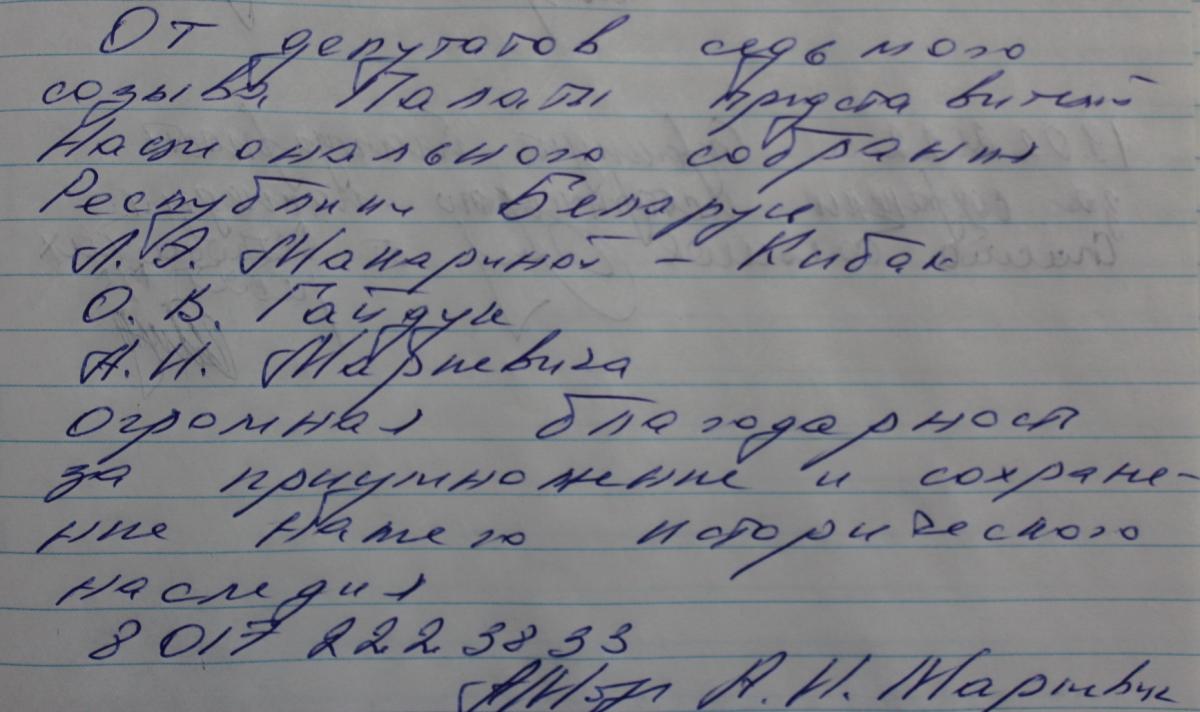 От депутатов седьмого
созыва Палаты представителей
Национального собрания
Республики Беларуси
Л.Э. Макариной - Кибак
О. В. Гайдук
А. И. Маркевича
огромная благодарност
за приумножение и сохране-
ние нашего исторического
наследия
8 017 222 38 33
А. И. Маркевич